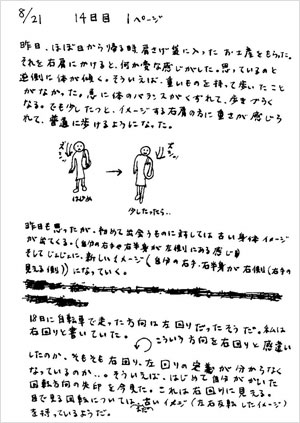 8/21 14日目 1ページ
昨日、ほぼ日から帰る時肩さげ袋に入ったお土産をもらった。
それを右肩にかけると、何か変な感じがした。思っているのと
逆側に体が傾く。そういえば、重いものを持って歩いたこと
がなかった。急に体のバランスがくずれて、歩きづらく
なる。でも少したつと、イメージする右肩の方に重さが感じら
れて、普通に歩けるようになった。
ズシッ
ズシッ
はじめ
少したったら..
昨日も思ったが、初めて出会うものに対しては古い身体イメージ
が出てくる。(自分の右手や右半身が左側にある感じ)
そしてじょじょに、新しいイメージ(自分の右手・右半身が右側(右手の
見える側))になっていく。
18日に自転車で走った方向は左回りだったそうだ。私は
右回りと書いていた。
こういう方向を右回りと感違い
したのか、そもそも右回り、左回りの定義が分からなく
なっているのか..。そういえば、はじめて自分がかいた
回転方向の矢印を今見た。これは右回りに見える。
目で見る回転については、まだ古いイメージ(左右反転したイメージ)
を持っているようだ。